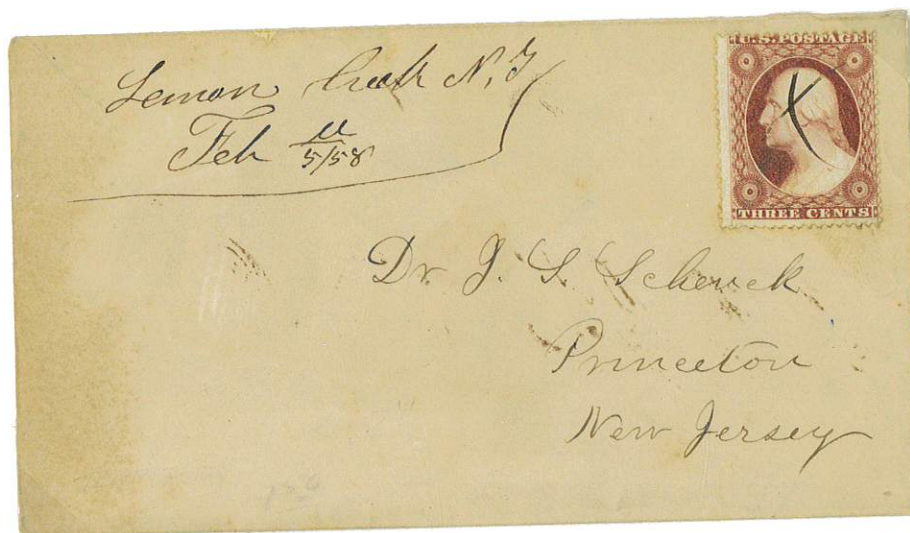 Lemon Creek N. Y
Feb 11
5/58
U.S. POSTAGE
THREE CENTS
Dr. J. S. Schenck
Princeton
New Jersey